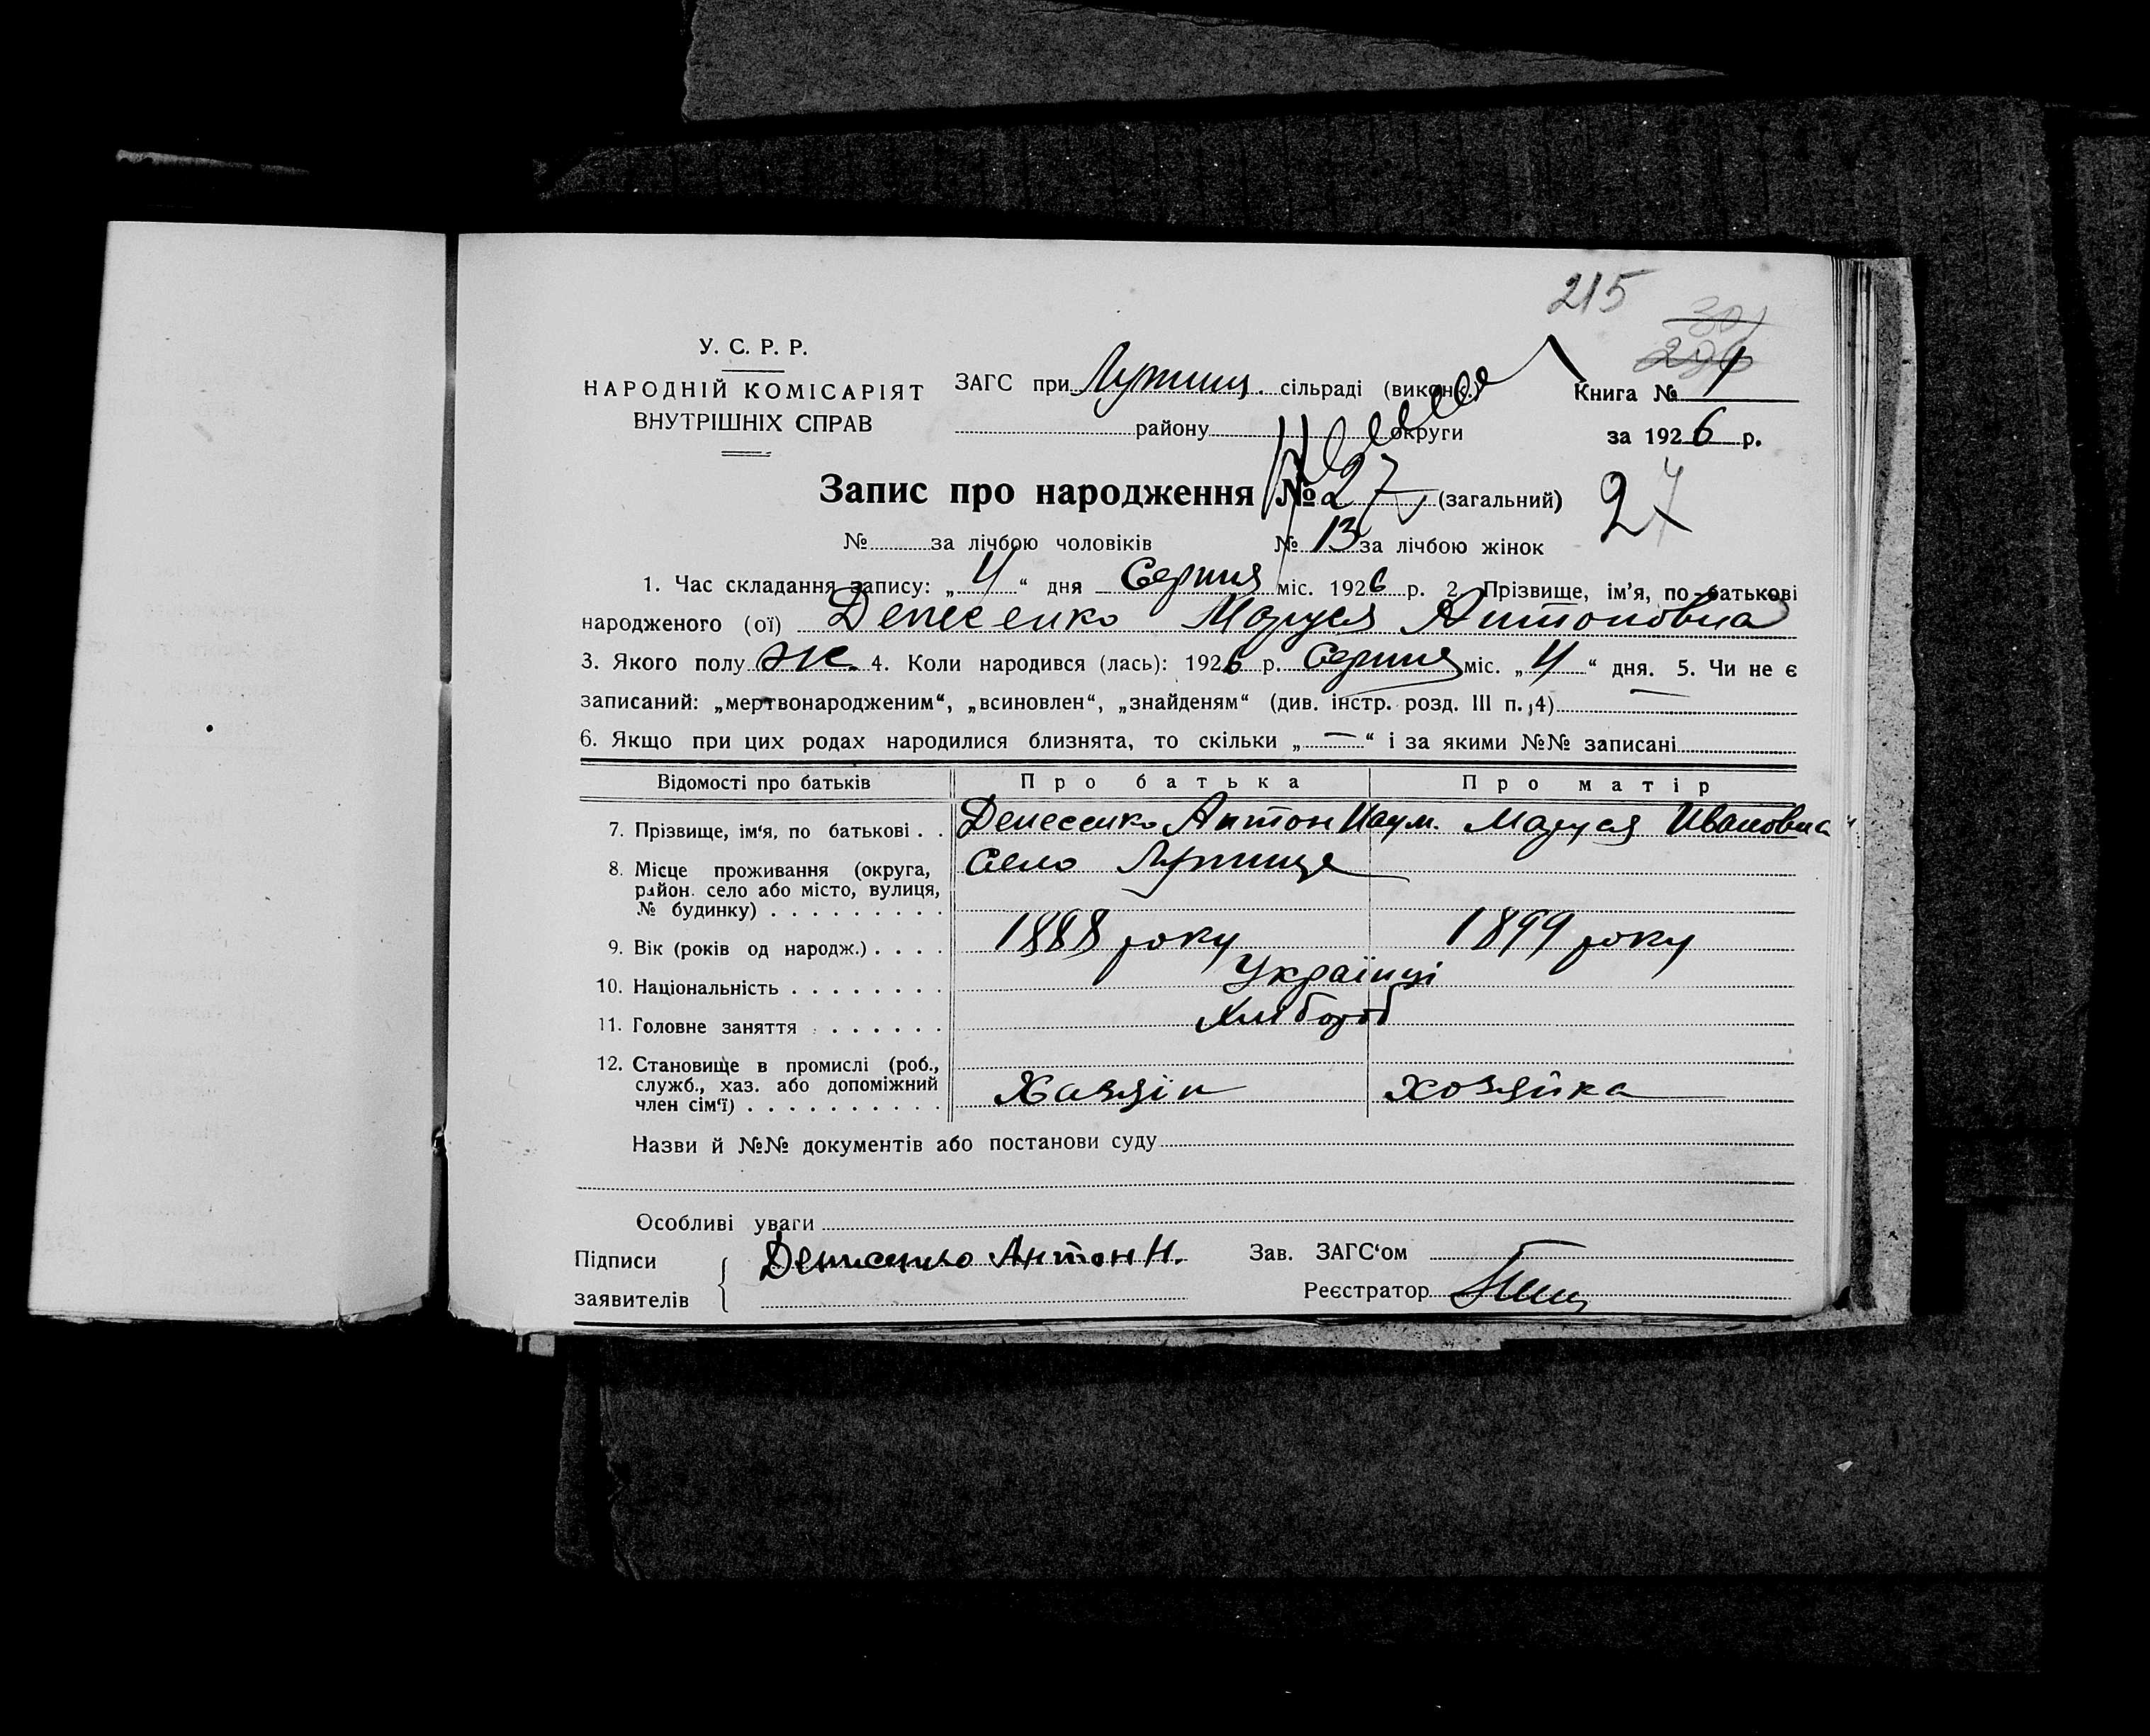 215
301
296
У. С. Р. Р.
НАРОДНІЙ КОМІСАРІЯТ
ВНУТРІШНІХ СПРАВ
ЗАГС при Лутищ. сільраді (виконк.)
району округи
Книга № 1
за 1926 р.
Запис про народження № 27 (загальний)
27
№ за лічбою чоловіків № 13 за лічбою жінок
1. Час складання запису: „4“ дня Серпня міс. 1926 р. 2. Прізвище, ім'я, по-батькові
народженого (ої) Денесенко Маруся Антоновна
3. Якого полу Ж. 4. Коли народився (лась): 1926 р. Серпня міс. „4“ дня. 5. Чи не є
записаний: „мертвонародженим“, „всиновлен“, „знайденям“ (див. інстр. розд. III п. 4) —
6. Якщо при цих родах народилися близнята, то скільки „—“ і за якими №№ записані
Відомості про батьків Про батька Про матір
7. Прізвище, ім'я, по батькові . . Денесенко Антон Наум. Маруся Ивановна
8. Місце проживання (округа, район. село або місто, вулиця, № будинку) . . . . . . . . . Село Лутище
9. Вік (років од народж.) . . . . 1888 року 1899 року
10. Національність . . . . . . . . Українці
11. Головне заняття . . . . . . Хлібороб
12. Становище в промислі (роб., служб., хаз. або допоміжний член сім'ї) . . . . . . . . . . Хазяін хозяйка
Назви й №№ документів або постанови суду
Особливі уваги
Підписи
заявителів
Денисенко Антон Н.
Зав. ЗАГС'ом
Реєстратор